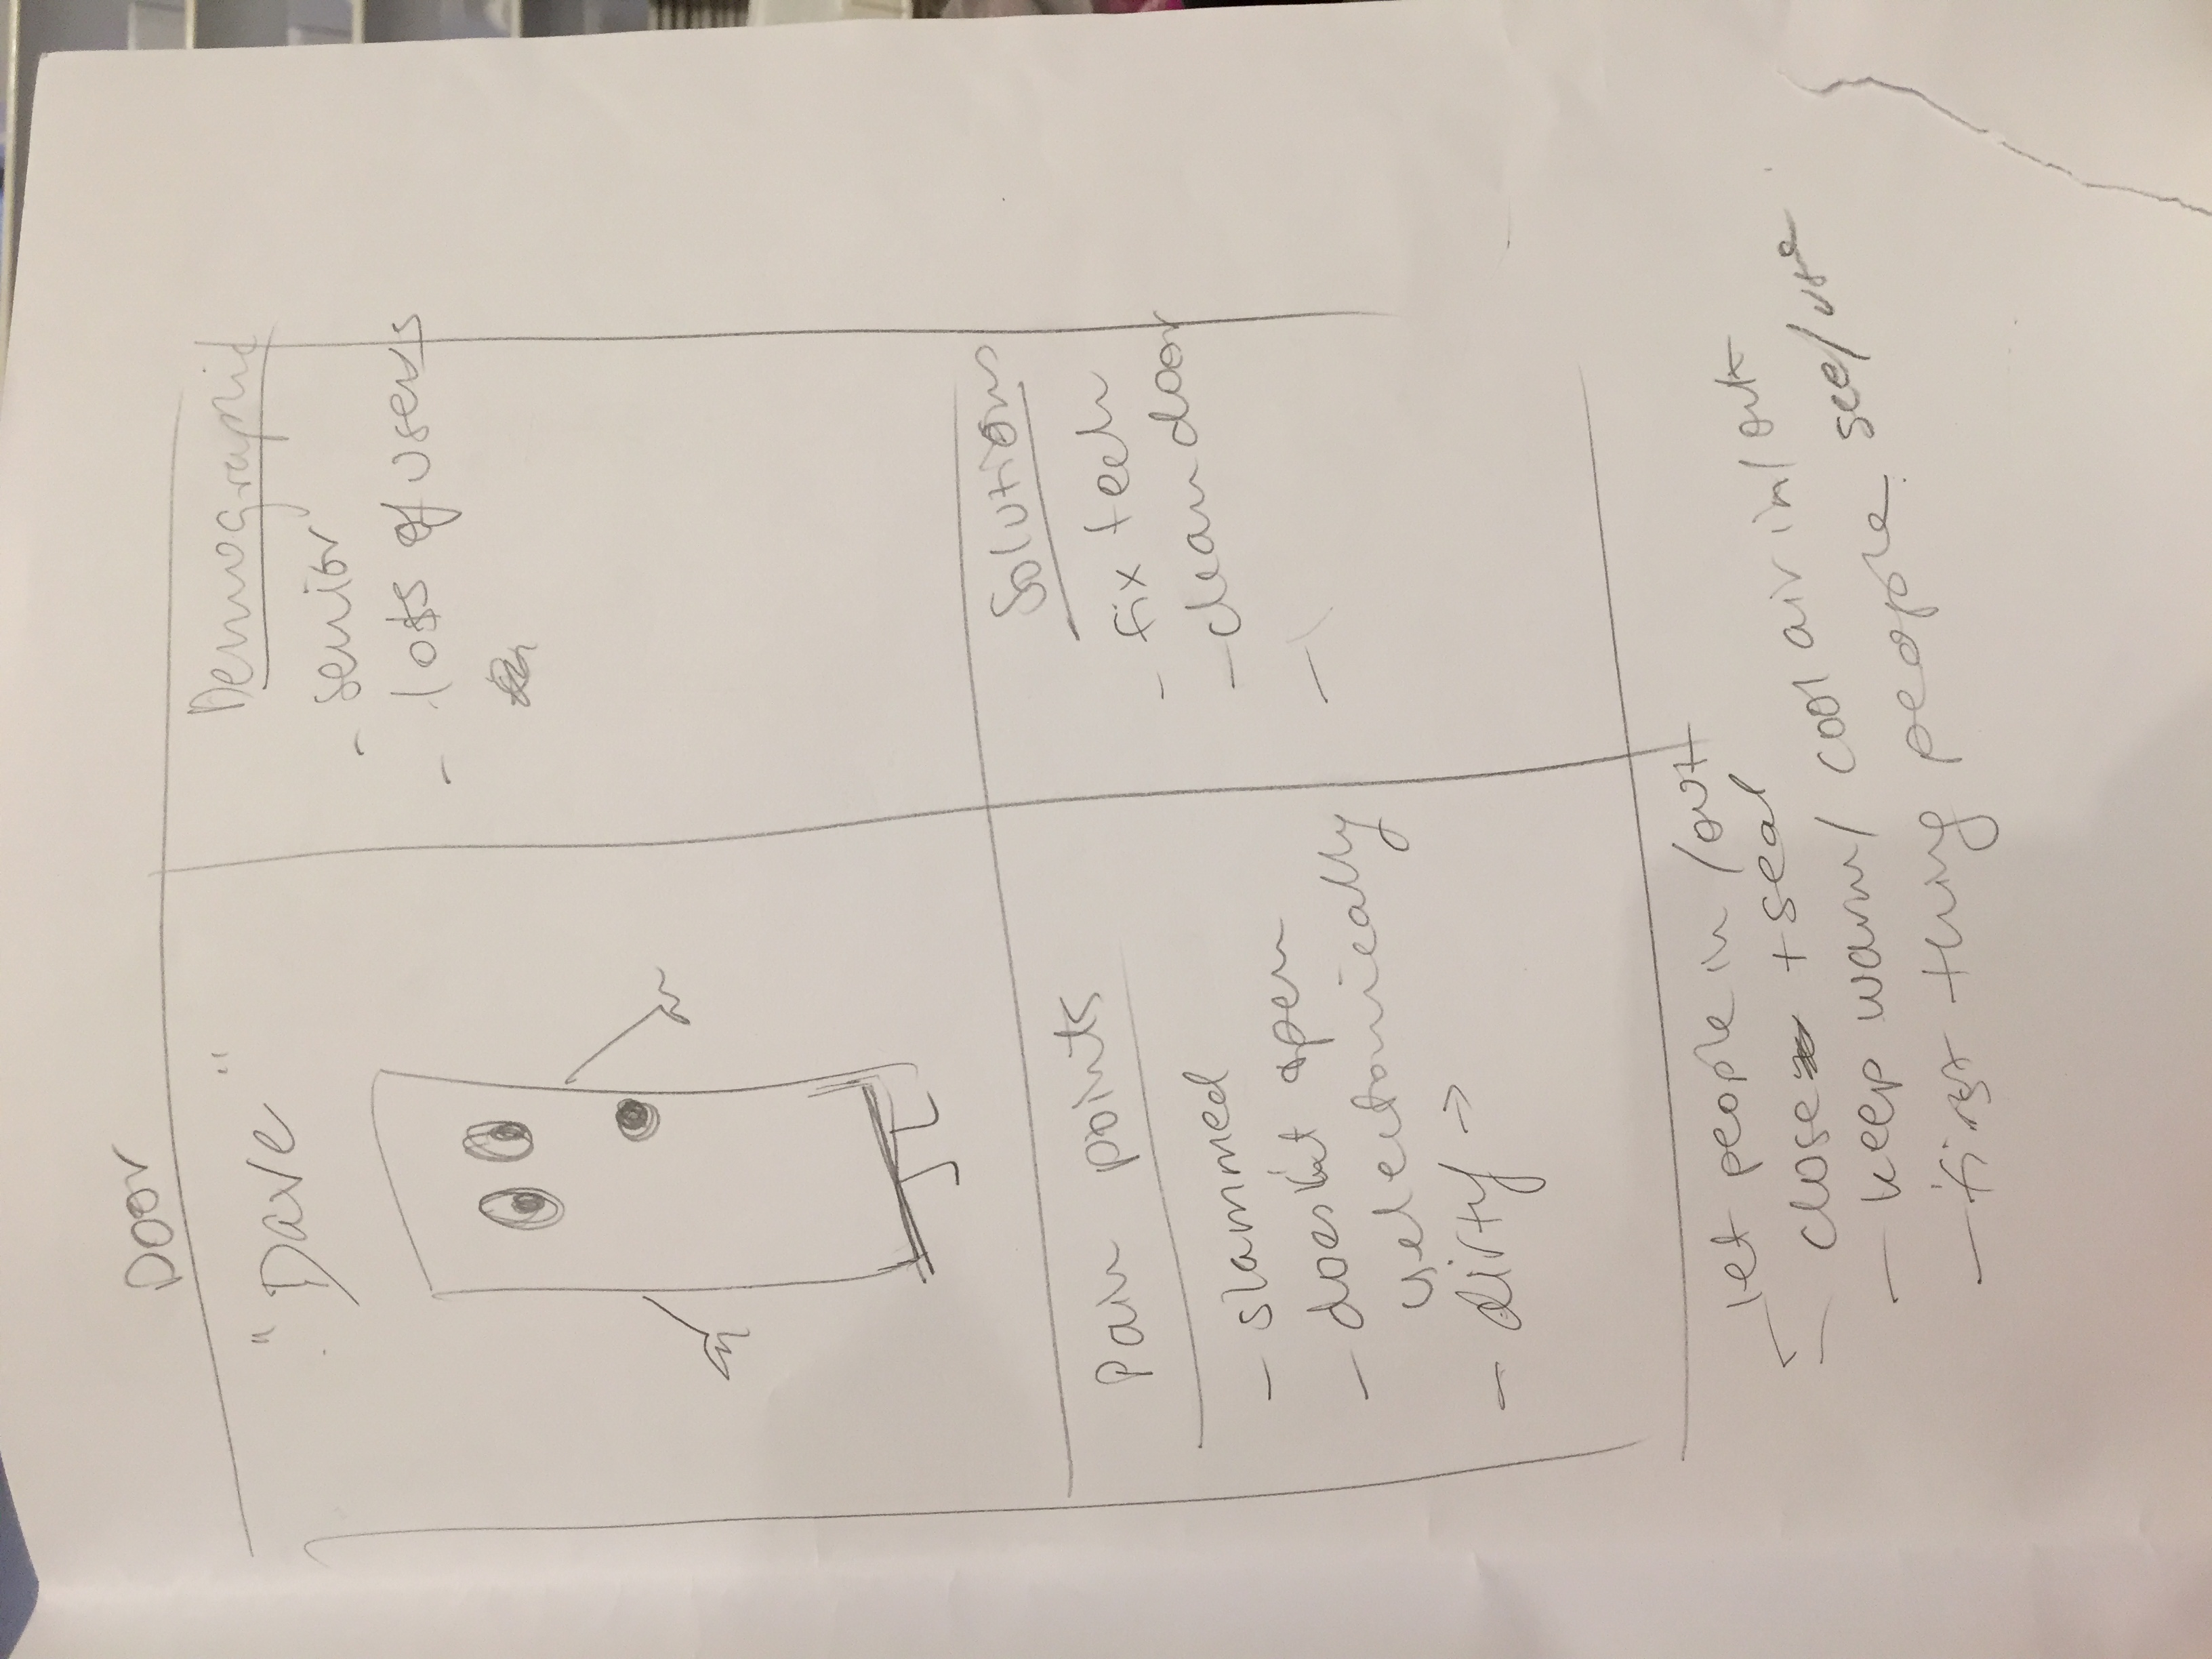 Door
"Dave"
Demographic
- senior
- lots of users
Pain points
- slammed
- doesn't open
yelectonically
- dirty →
Solutions
- fix tech
- clean door
-
- let people in/out
- close + seal
- keep warm/cool air in/out
- first thing people see/use